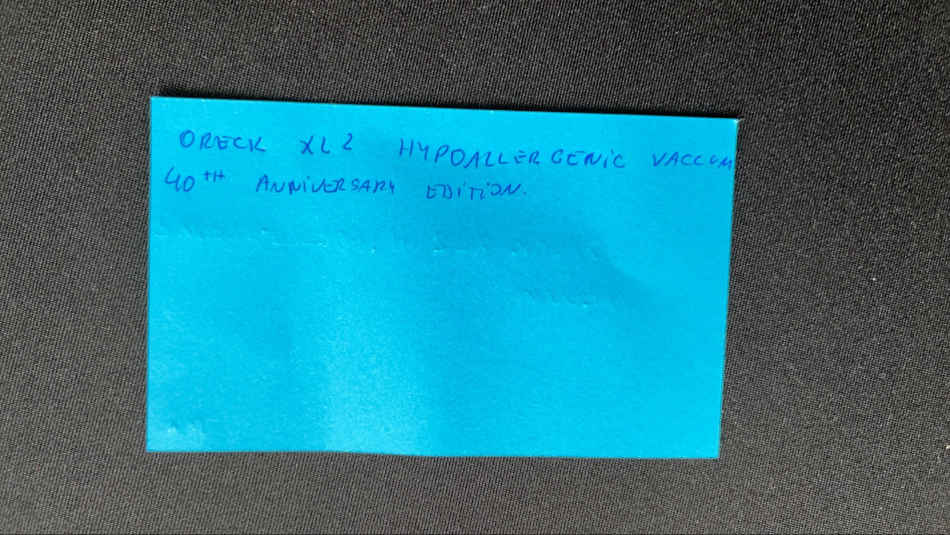 ORECK XL2 HYPOALLERGENIC VACCUM
40TH ANNIVERSARY EDITION.